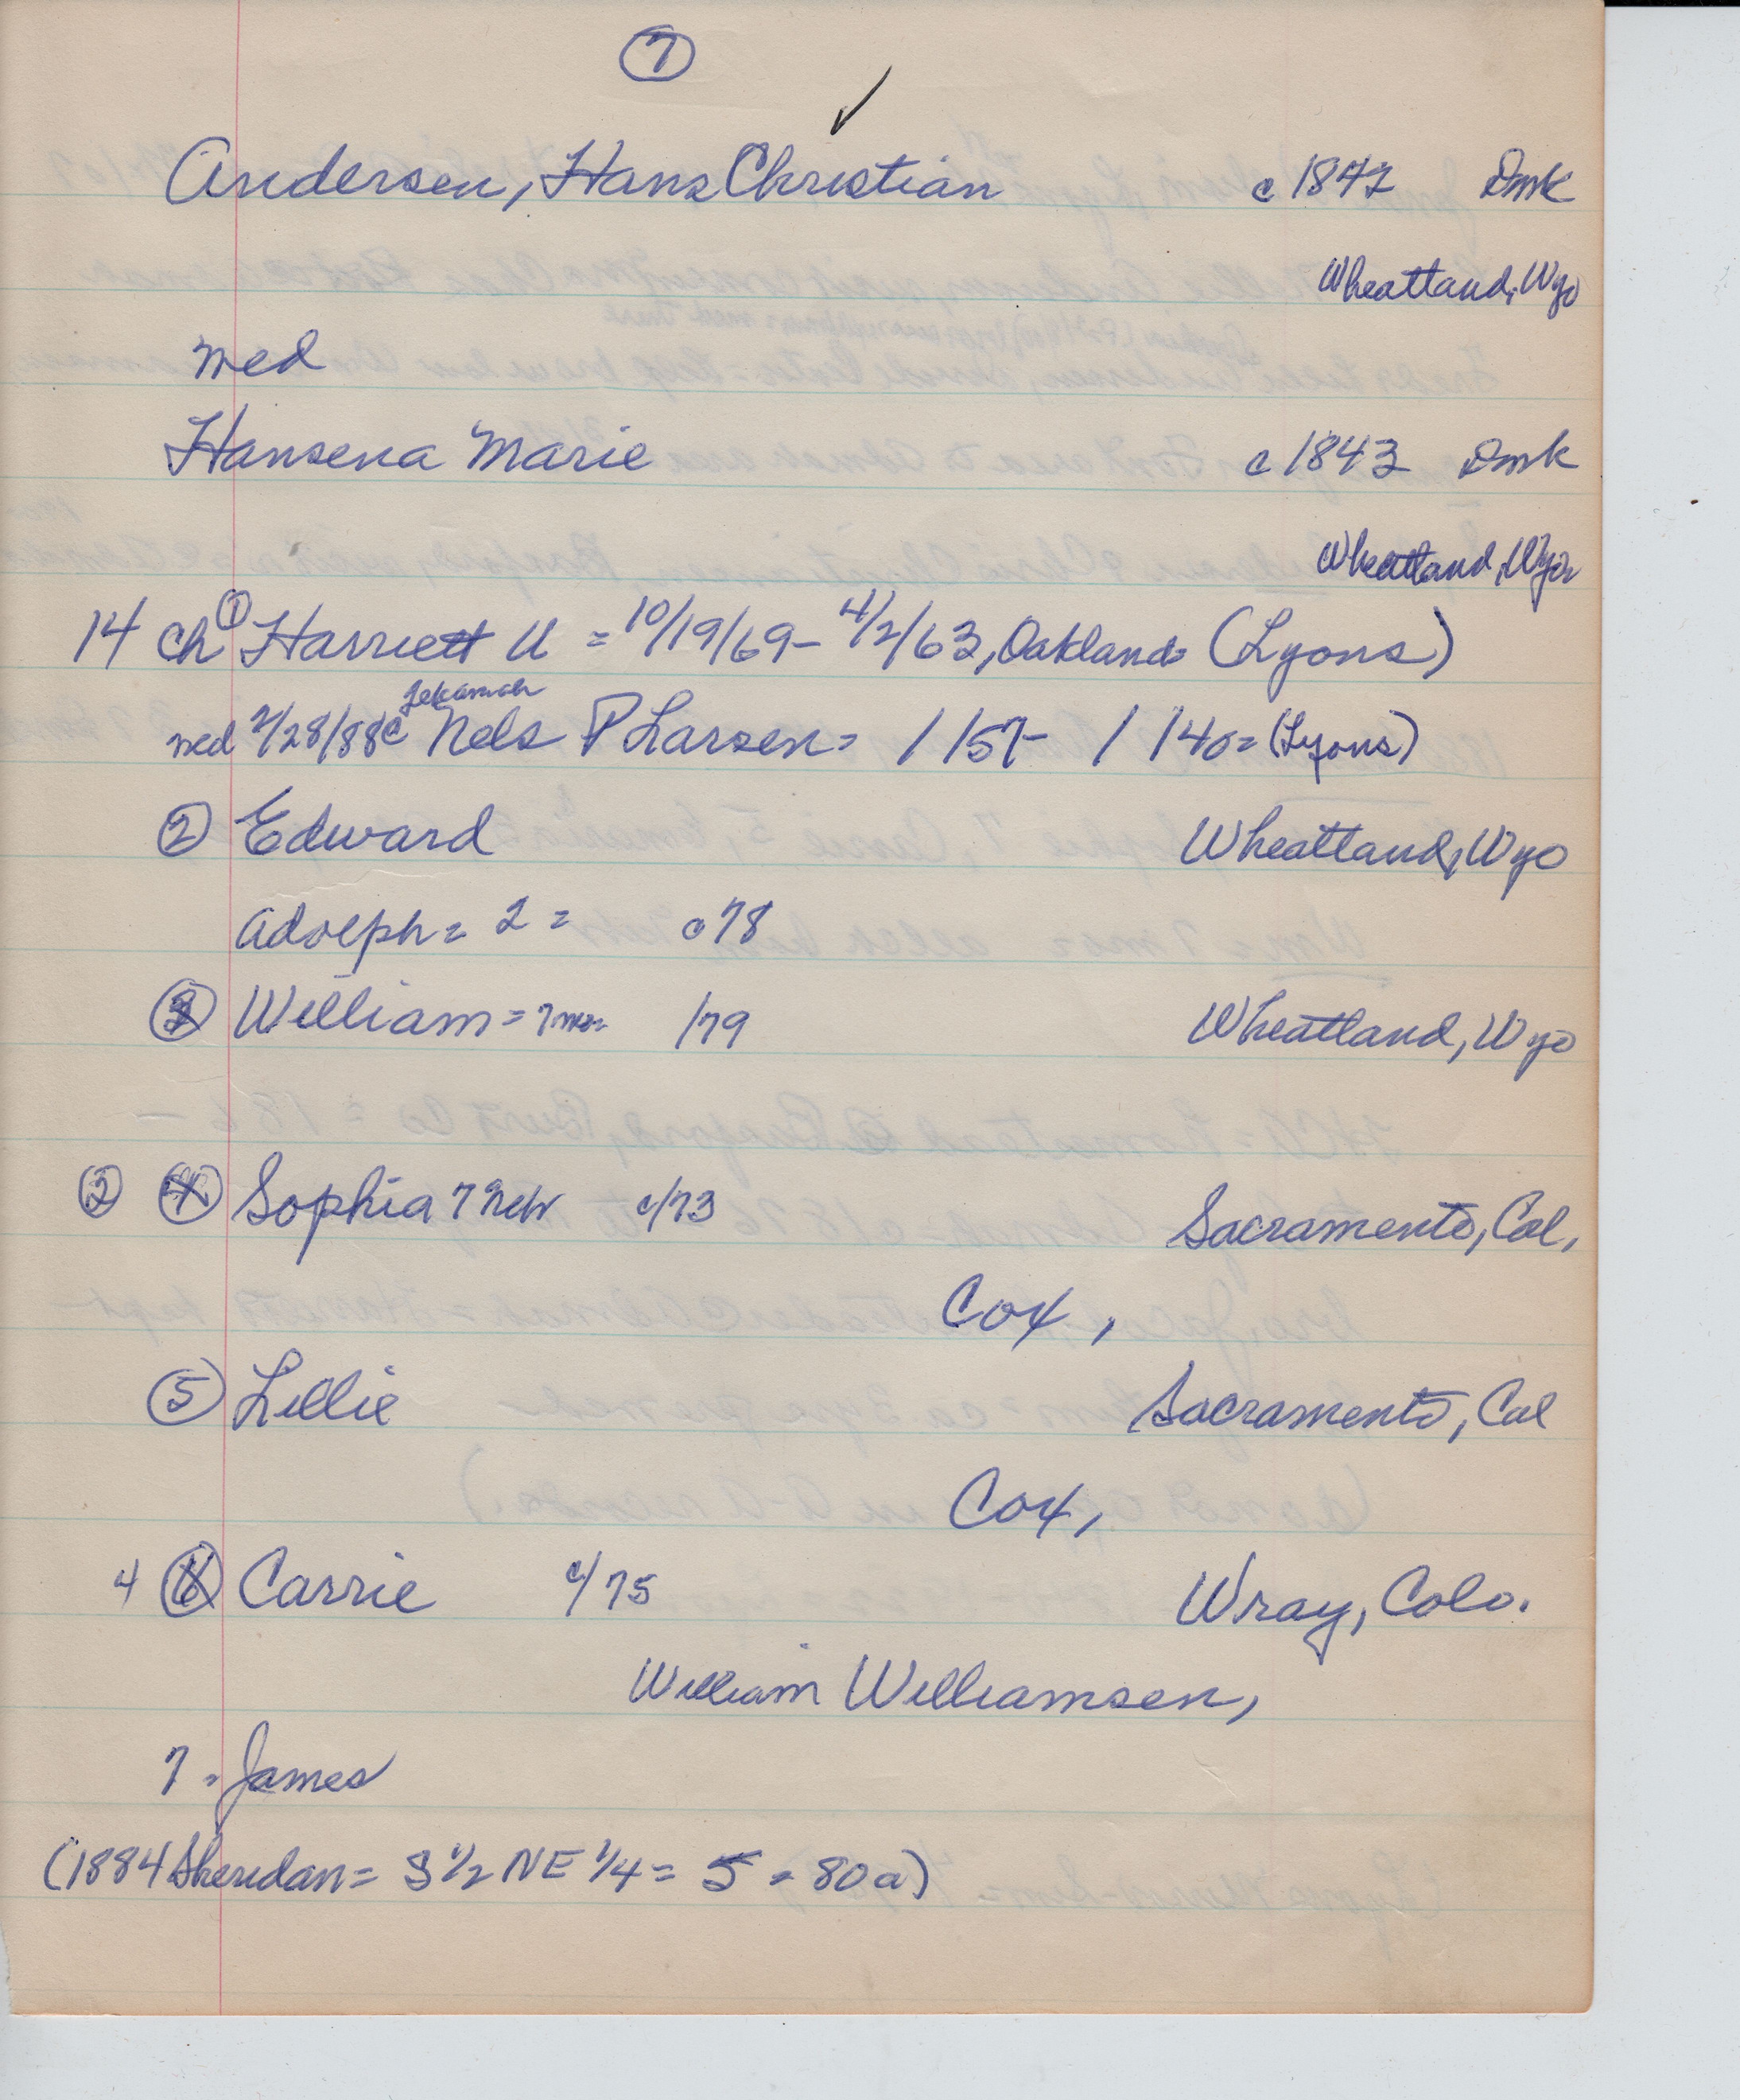 7
Andersen, Hans Christian c 1847 Dmk
Wheatland, Wyo
med
Hansena Marie c 1843 Dmk
Wheatland, Wyo
14 Ch ① Harriett U = 10/19/69 - 4/2/63, Oakland (Lyons)
Tekamah
med 2/28/88 @ Nels P Larsen = / /57 - / /40 = (Lyons)
② Edward Wheatland, Wyo
Adolph = 2 = c 78
③ William = 7 mos /79 Wheatland, Wyo
③ ④ Sophia 7 Nebr c/73 Sacramento, Cal,
Cox,
⑤ Lillie Sacramento, Cal
Cox,
4 ⑥ Carrie c/75 Wray, Colo.
William Williamsen,
7 = James
(1884 Sheridan = S 1/2 NE 1/4 = 5 = 80 a)